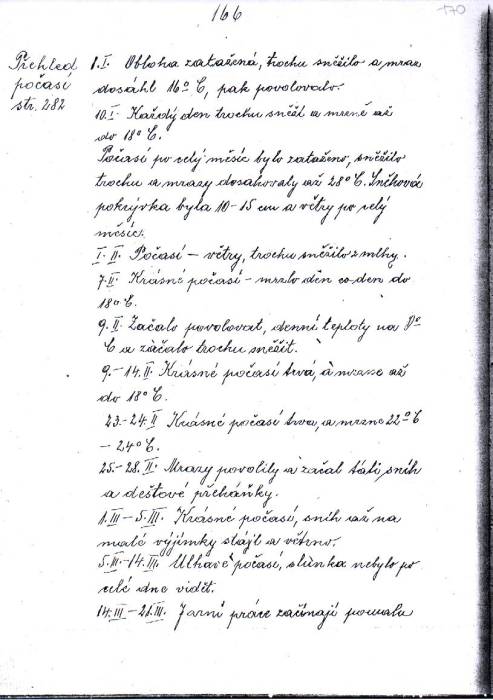 166
170
Přehled
počasí
str. 282
1.I. Obloha zatažená, trochu sněžilo a mraz
dosáhl 16° C, pak povolovalo.
10.I. Každý den trochu sněží a mrzne až
do 18° C.
Počasí po celý měsíc bylo zataženo, sněžilo
trochu a mrazy dosahovaly až 28° C. Sněhová
pokrývka byla 10-15 cm a větry po celý
měsíc.
I. II. Počasí – větry, trochu sněžilo z mlhy.
7.II. Krásné počasí – mrzlo den co den do
18° C.
9.II. Začalo povolovat, denní teploty na 0°
C a začalo trochu sněžit.
9.-14.II. Krásné počasí trvá, a mrzne až
do 18° C.
23.-24.II Krásné počasí trva, a mrzne 22° C
– 24° C.
25.-28.II. Mrazy povolily a začal táti, sníh
a dešťové přeháňky.
1.III – 5.III. Krásné počasí, sníh až na
malé výjimky stájl a větrno.
5.III.-14.III. Mlhavé počasí, slunka nebylo po
celé dne vidět.
14.III – 21.III. Jarní práce začínají pomalu